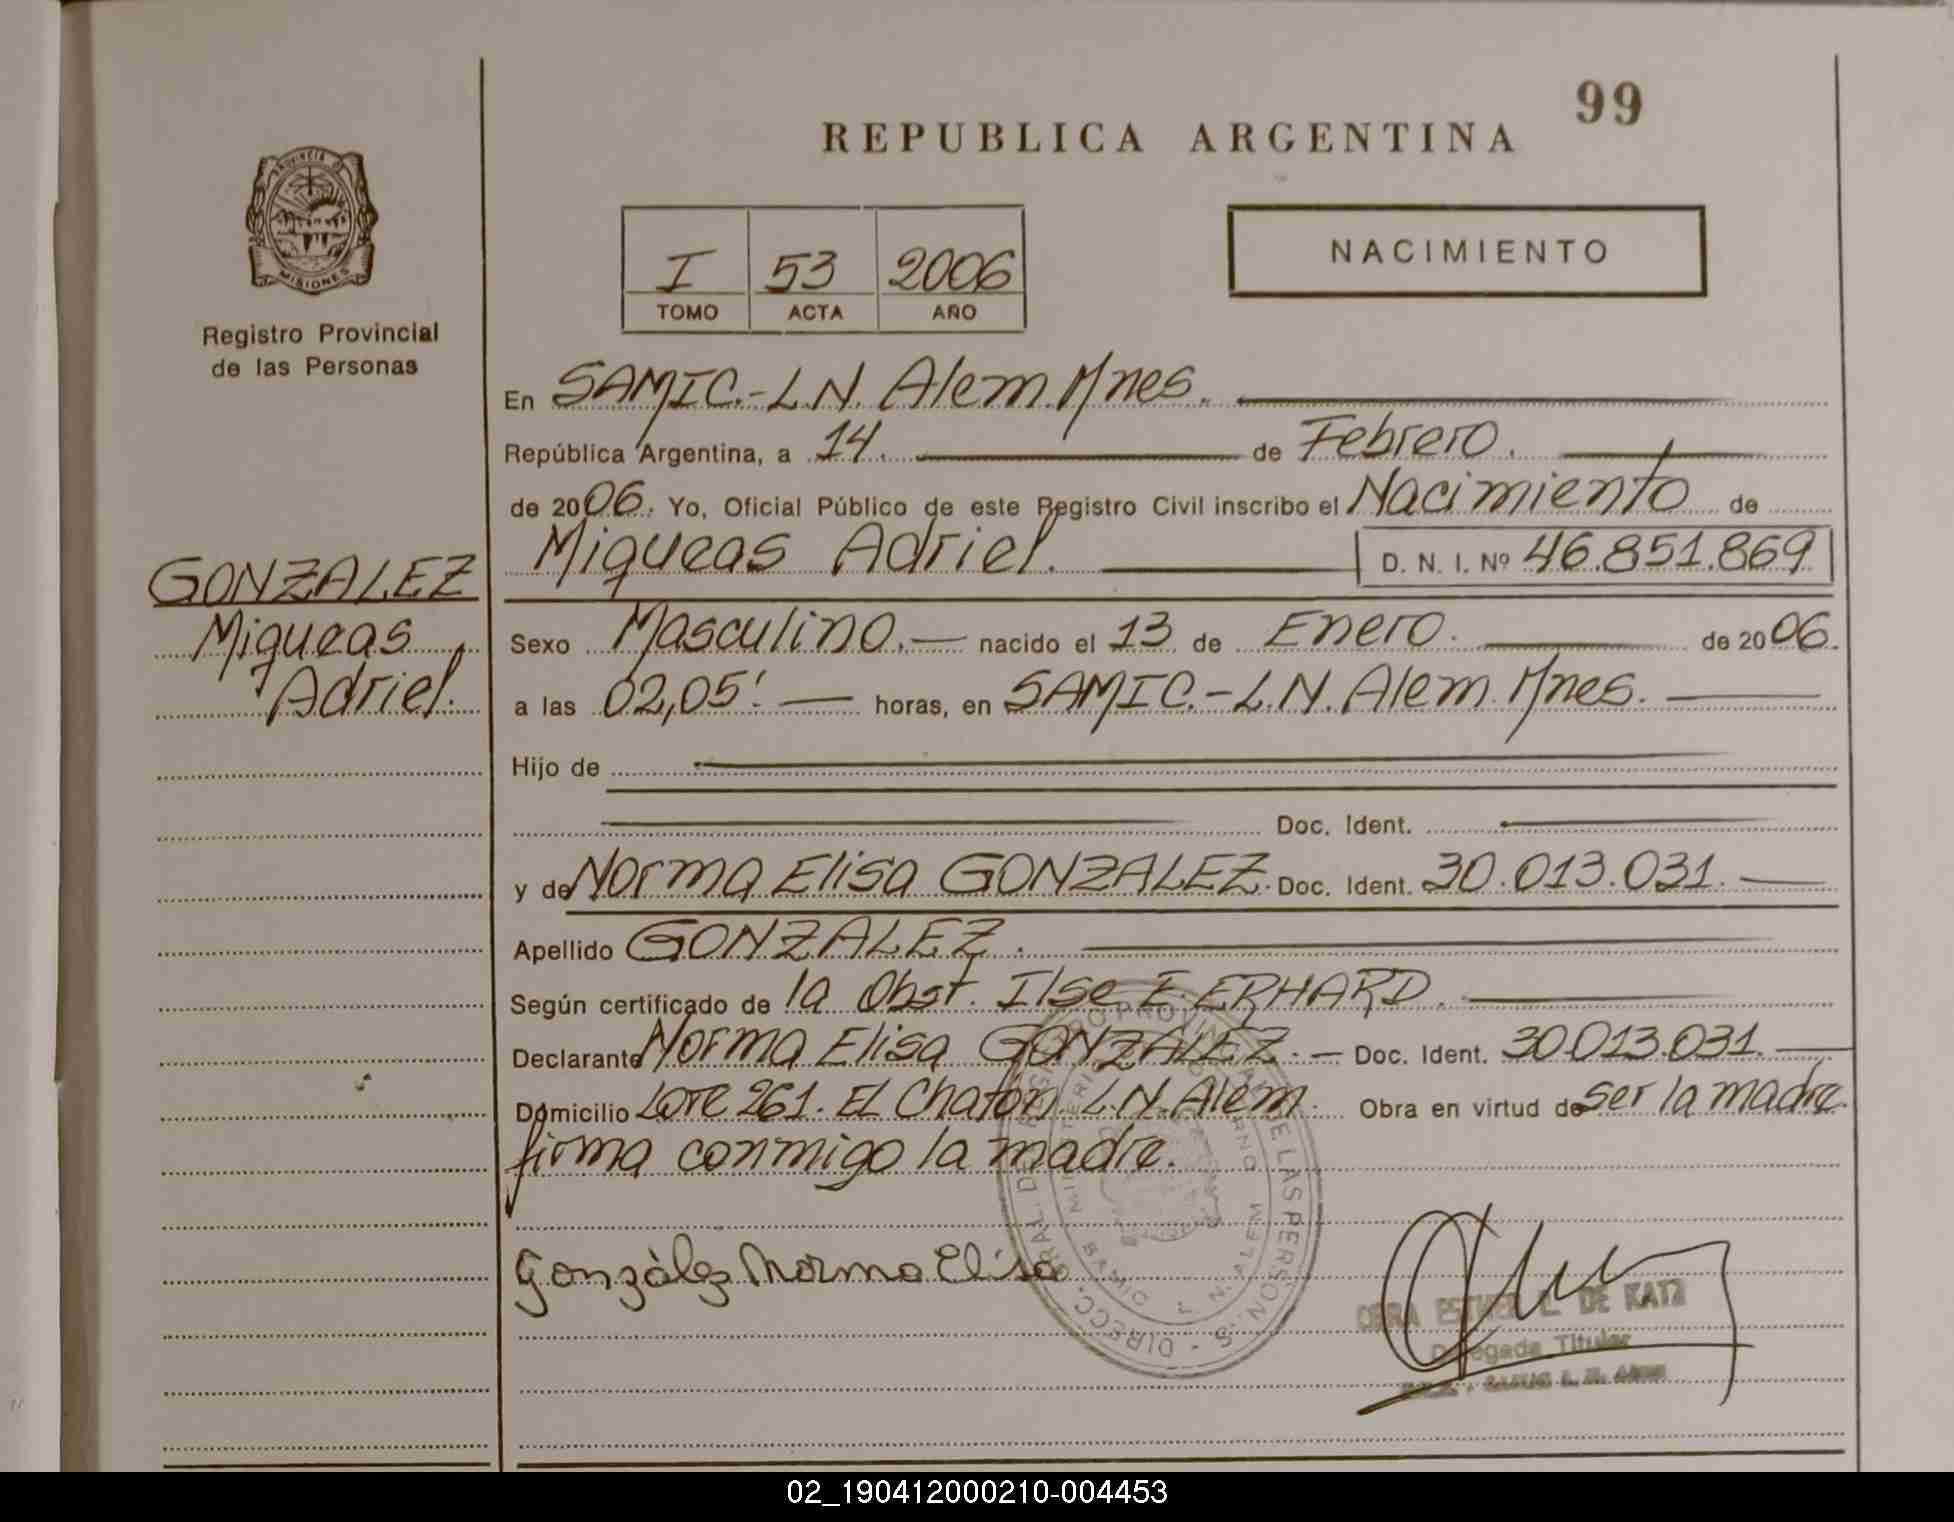 99
REPUBLICA ARGENTINA
PROVINCIA DE
MISIONES
Registro Provincial
de las Personas
I 53 2006
TOMO ACTA AÑO
NACIMIENTO
En SAMIC.-L.N. Alem. Mnes.
República Argentina, a 14. de Febrero.
de 2006. Yo, Oficial Público de este Registro Civil inscribo el Nacimiento de
Miqueas Adriel. D. N. I. Nº 46.851.869
GONZALEZ
Miqueas
Adriel.
Sexo Masculino.— nacido el 13 de Enero. de 2006.
a las 02,05'. — horas, en SAMIC.-L.N. Alem. Mnes.
Hijo de
Doc. Ident.
y de Norma Elisa GONZALEZ. Doc. Ident. 30.013.031.
Apellido GONZALEZ.
Según certificado de la Obst. Ilse E. ERHARD.
Declarante Norma Elisa GONZALEZ.— Doc. Ident. 30.013.031.
Domicilio Lote 261. El Chatón. L.N. Alem. Obra en virtud de ser la madre.
firma conmigo la madre.
González Norma Elisa
DIRECC. GRAL. DE REGISTRO PROVINCIAL DE LAS PERSONAS
SAMIC L. N. ALEM
ESTHER L. DE KATZ
Delegada Titular
SAMIC L. N. ALEM
02_190412000210-004453